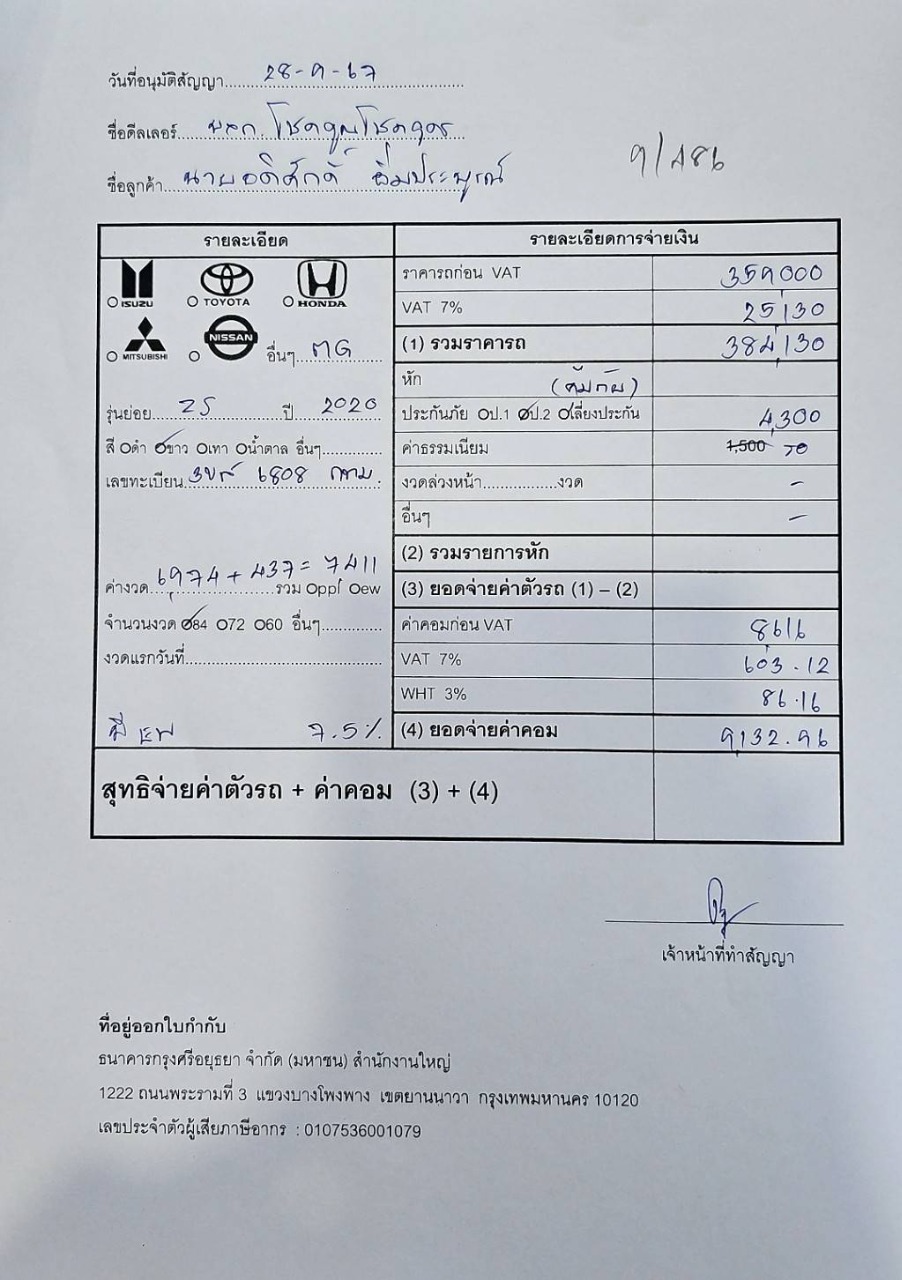 วันที่อนุมัติสัญญา 28-9-67
ชื่อดีลเลอร์ บจก. โชคคูณโชคคูณ
9/486
ชื่อลูกค้า นายอดิศักดิ์
รายละเอียด
รายละเอียดการจ่ายเงิน
ISUZU TOYOTA HONDA
ราคารถก่อน VAT 359000
VAT 7% 25,130
MITSUBISHI NISSAN อื่นๆ MG
(1) รวมราคารถ 384,130
หัก (คุ้มภัย)
รุ่นย่อย ZS ปี 2020
ประกันภัย ป.1 ป.2 เลี่ยงประกัน 4,300
สี ดำ ขาว เทา น้ำตาล อื่นๆ
ค่าธรรมเนียม 1,500
เลขทะเบียน 6808 กทม.
งวดล่วงหน้า งวด -
อื่นๆ -
(2) รวมรายการหัก
ค่างวด 6,974 + 437 = 7411 รวม Oppf Oew
(3) ยอดจ่ายค่าตัวรถ (1) – (2)
จำนวนงวด 84 72 60 อื่นๆ
ค่าคอมก่อน VAT 8616
งวดแรกวันที่
VAT 7% 603.12
WHT 3% 86.16
7.5%
(4) ยอดจ่ายค่าคอม 9,132.96
สุทธิจ่ายค่าตัวรถ + ค่าคอม (3) + (4)
เจ้าหน้าที่ทำสัญญา
ที่อยู่ออกใบกำกับ
ธนาคารกรุงศรีอยุธยา จำกัด (มหาชน) สำนักงานใหญ่
1222 ถนนพระรามที่ 3 แขวงบางโพงพาง เขตยานนาวา กรุงเทพมหานคร 10120
เลขประจำตัวผู้เสียภาษีอากร : 0107536001079